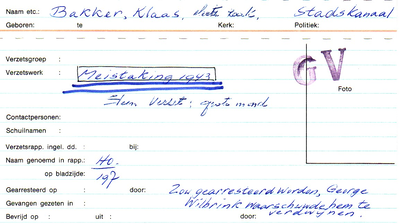 Naam etc.: Bakker, Klaas, Stadskanaal
Geboren: te Kerk: Politiek:
Verzetsgroep :
Verzetswerk : Meistaking 1943
GV
Foto
Elem verzet; grote mond
Contactpersonen:
Schuilnamen :
Verzetsrapp. ingel. dd. : bij:
Naam genoemd in rapp.: HO.
op bladzijde: 197
Gearresteerd op : door: Zou gearresteerd worden, George
Gevangen gezeten in : Wilbrink waarschuwde hem te
Bevrijd op : uit : door: verdwijnen.